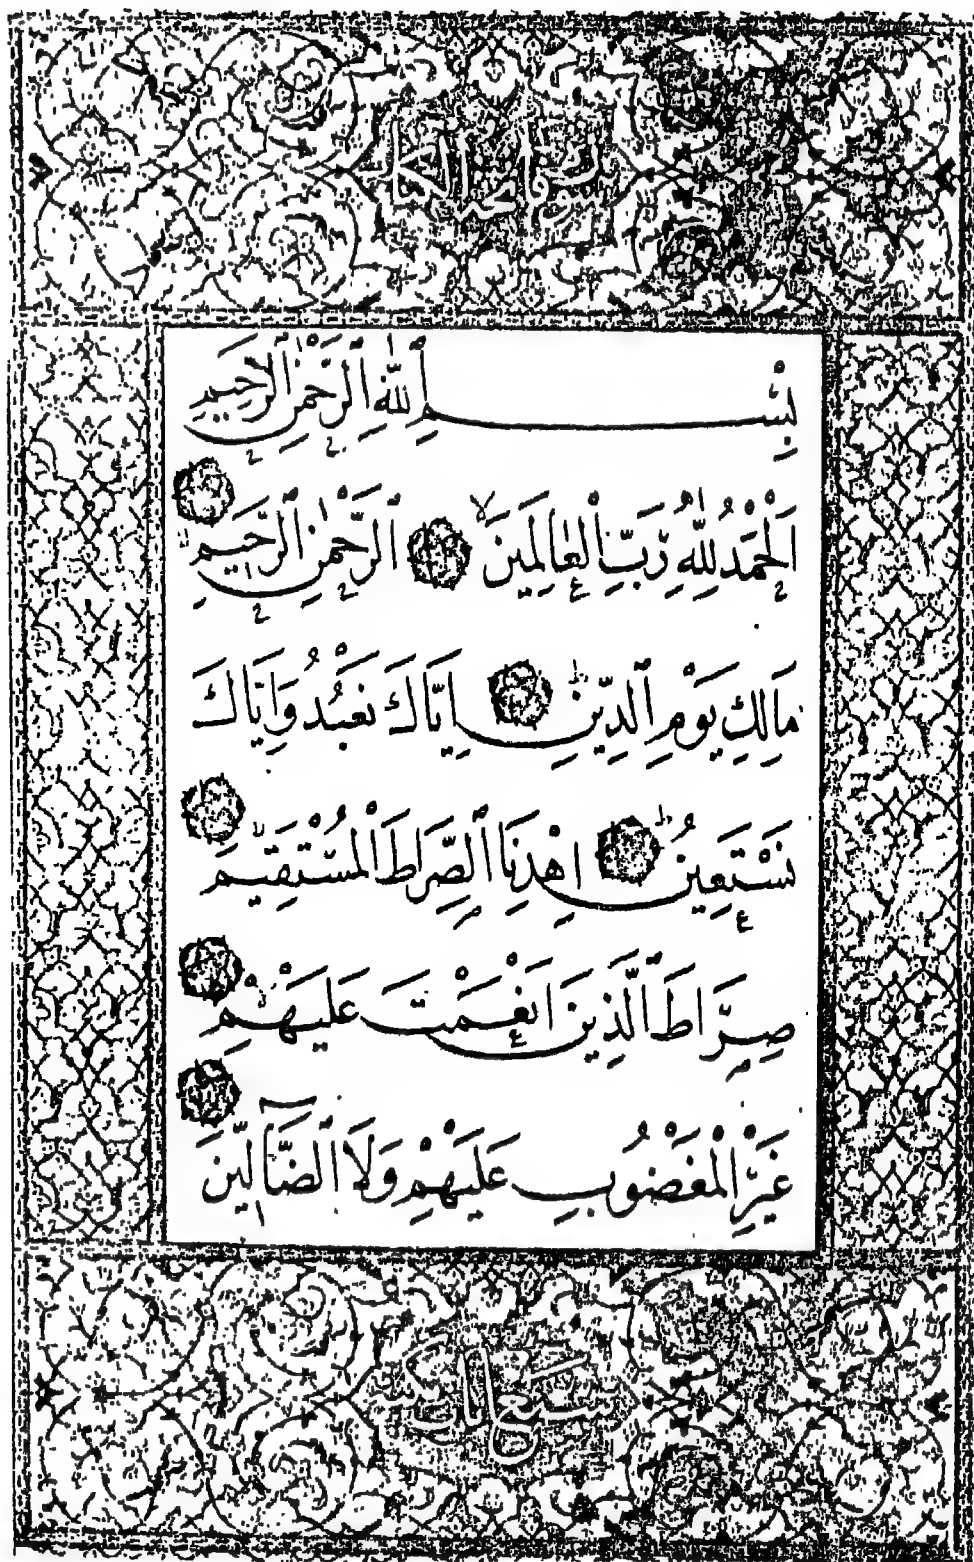 سورة فاتحة الكتاب
بِسْمِ اللهِ الرَّحْمٰنِ الرَّحِيمِ
اَلْحَمْدُ لِلّٰهِ رَبِّ الْعَالَمِينَ الرَّحْمٰنِ الرَّحِيمِ
مَالِكِ يَوْمِ الدِّينِ اِيَّاكَ نَعْبُدُ وَاِيَّاكَ
نَسْتَعِينُ اِهْدِنَا الصِّرَاطَ الْمُسْتَقِيمَ
صِرَاطَ الَّذِينَ اَنْعَمْتَ عَلَيْهِمْ
غَيْرِ الْمَغْضُوبِ عَلَيْهِمْ وَلَا الضَّآلِّينَ
سبع آيات